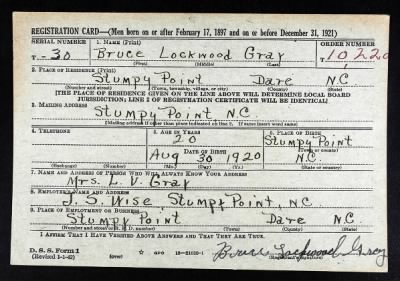 REGISTRATION CARD—(Men born on or after February 17, 1897 and on or before December 31, 1921)
SERIAL NUMBER 1. NAME (Print) ORDER NUMBER
T-30 Bruce Lockwood Gray 10,220
(First) (Middle) (Last)
2. PLACE OF RESIDENCE (Print)
Stumpy Point Dare N.C
(Number and street) (Town, township, village, or city) (County) (State)
[THE PLACE OF RESIDENCE GIVEN ON THE LINE ABOVE WILL DETERMINE LOCAL BOARD
JURISDICTION; LINE 2 OF REGISTRATION CERTIFICATE WILL BE IDENTICAL]
3. MAILING ADDRESS
Stumpy Point N.C.
[Mailing address if other than place indicated on line 2. If same insert word same]
4. TELEPHONE 5. AGE IN YEARS 6. PLACE OF BIRTH
20 Stumpy Point
DATE OF BIRTH (Town or county)
Aug 30 1920 N.C.
(Exchange) (Number) (Mo.) (Day) (Yr.) (State or country)
7. NAME AND ADDRESS OF PERSON WHO WILL ALWAYS KNOW YOUR ADDRESS
Mrs. L. V. Gray
8. EMPLOYER'S NAME AND ADDRESS
J. S. Wise Stumpy Point, NC
9. PLACE OF EMPLOYMENT OR BUSINESS
Stumpy Point Dare N.C.
(Number and street or R. F. D. number) (Town) (County) (State)
I AFFIRM THAT I HAVE VERIFIED ABOVE ANSWERS AND THAT THEY ARE TRUE.
D. S. S. Form 1
(Revised 1-1-42) (over) Bruce Lockwood Gray